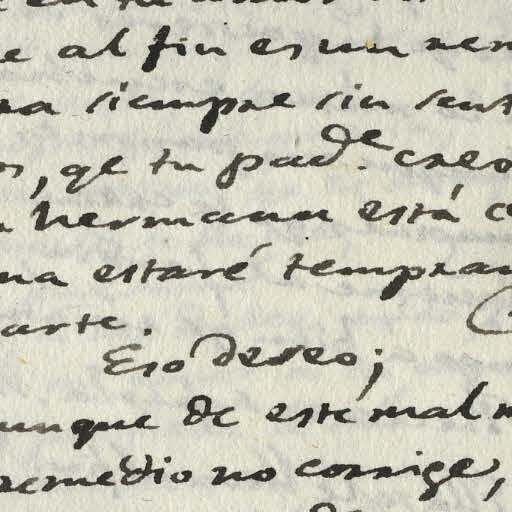 e al fin es un rem
ra siempre sin sent
os, qe tu pad.de creo
hermann está c
na estaré tempran
arte.
Eso deseo;
unque de este mal n
remedio no corrige,